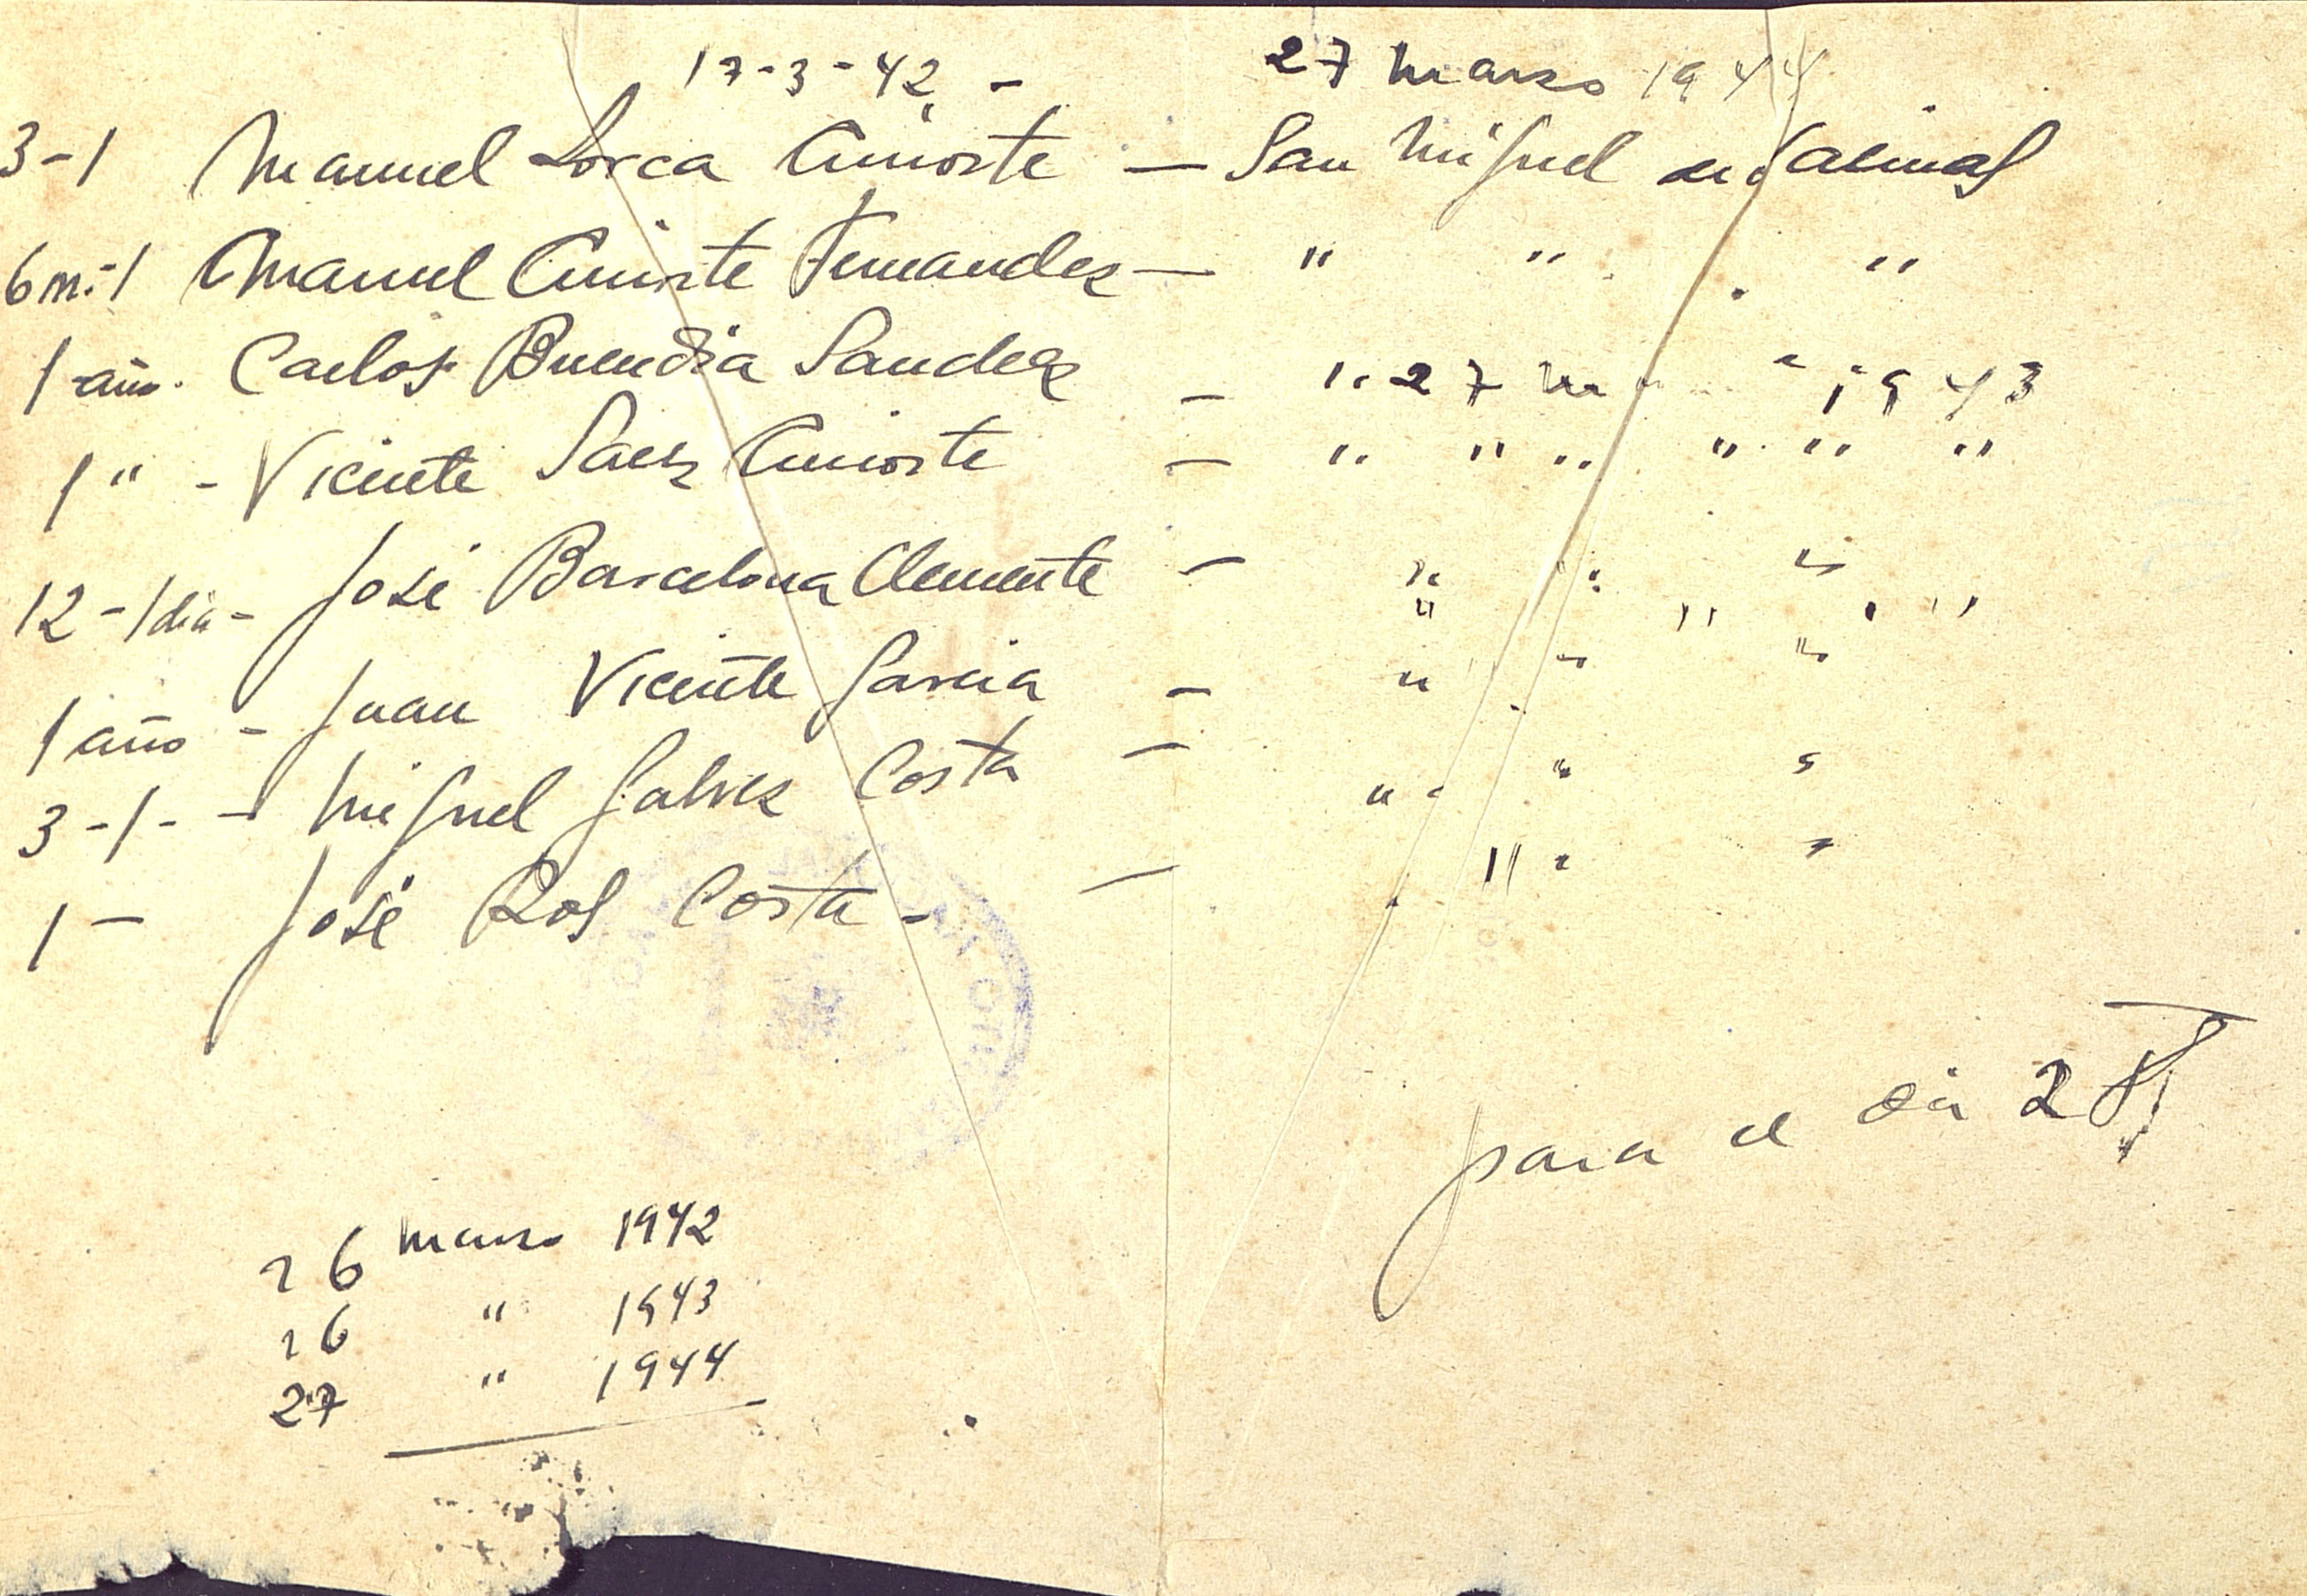 17-3-42 - 27 marzo 1944
3-1 Manuel Lorca Aniorte — San Miguel de Salinas
6m-1 Manuel Aniorte Fernandez — " " "
1 año. Carlos Buendia Sandez — " 27 m " " 1943
1 " - Vicente Saez Aniorte — " " " " " "
12-1 dia - José Barcelona Clemente — " " "
" " " "
1 año - Juan Vicente Garcia — " " "
3-1- - Miguel Galvez Costa — " " "
1 — José Ros Costa - — " " "
para el dia 27
26 marzo 1942
26 " 1943
27 " 1944